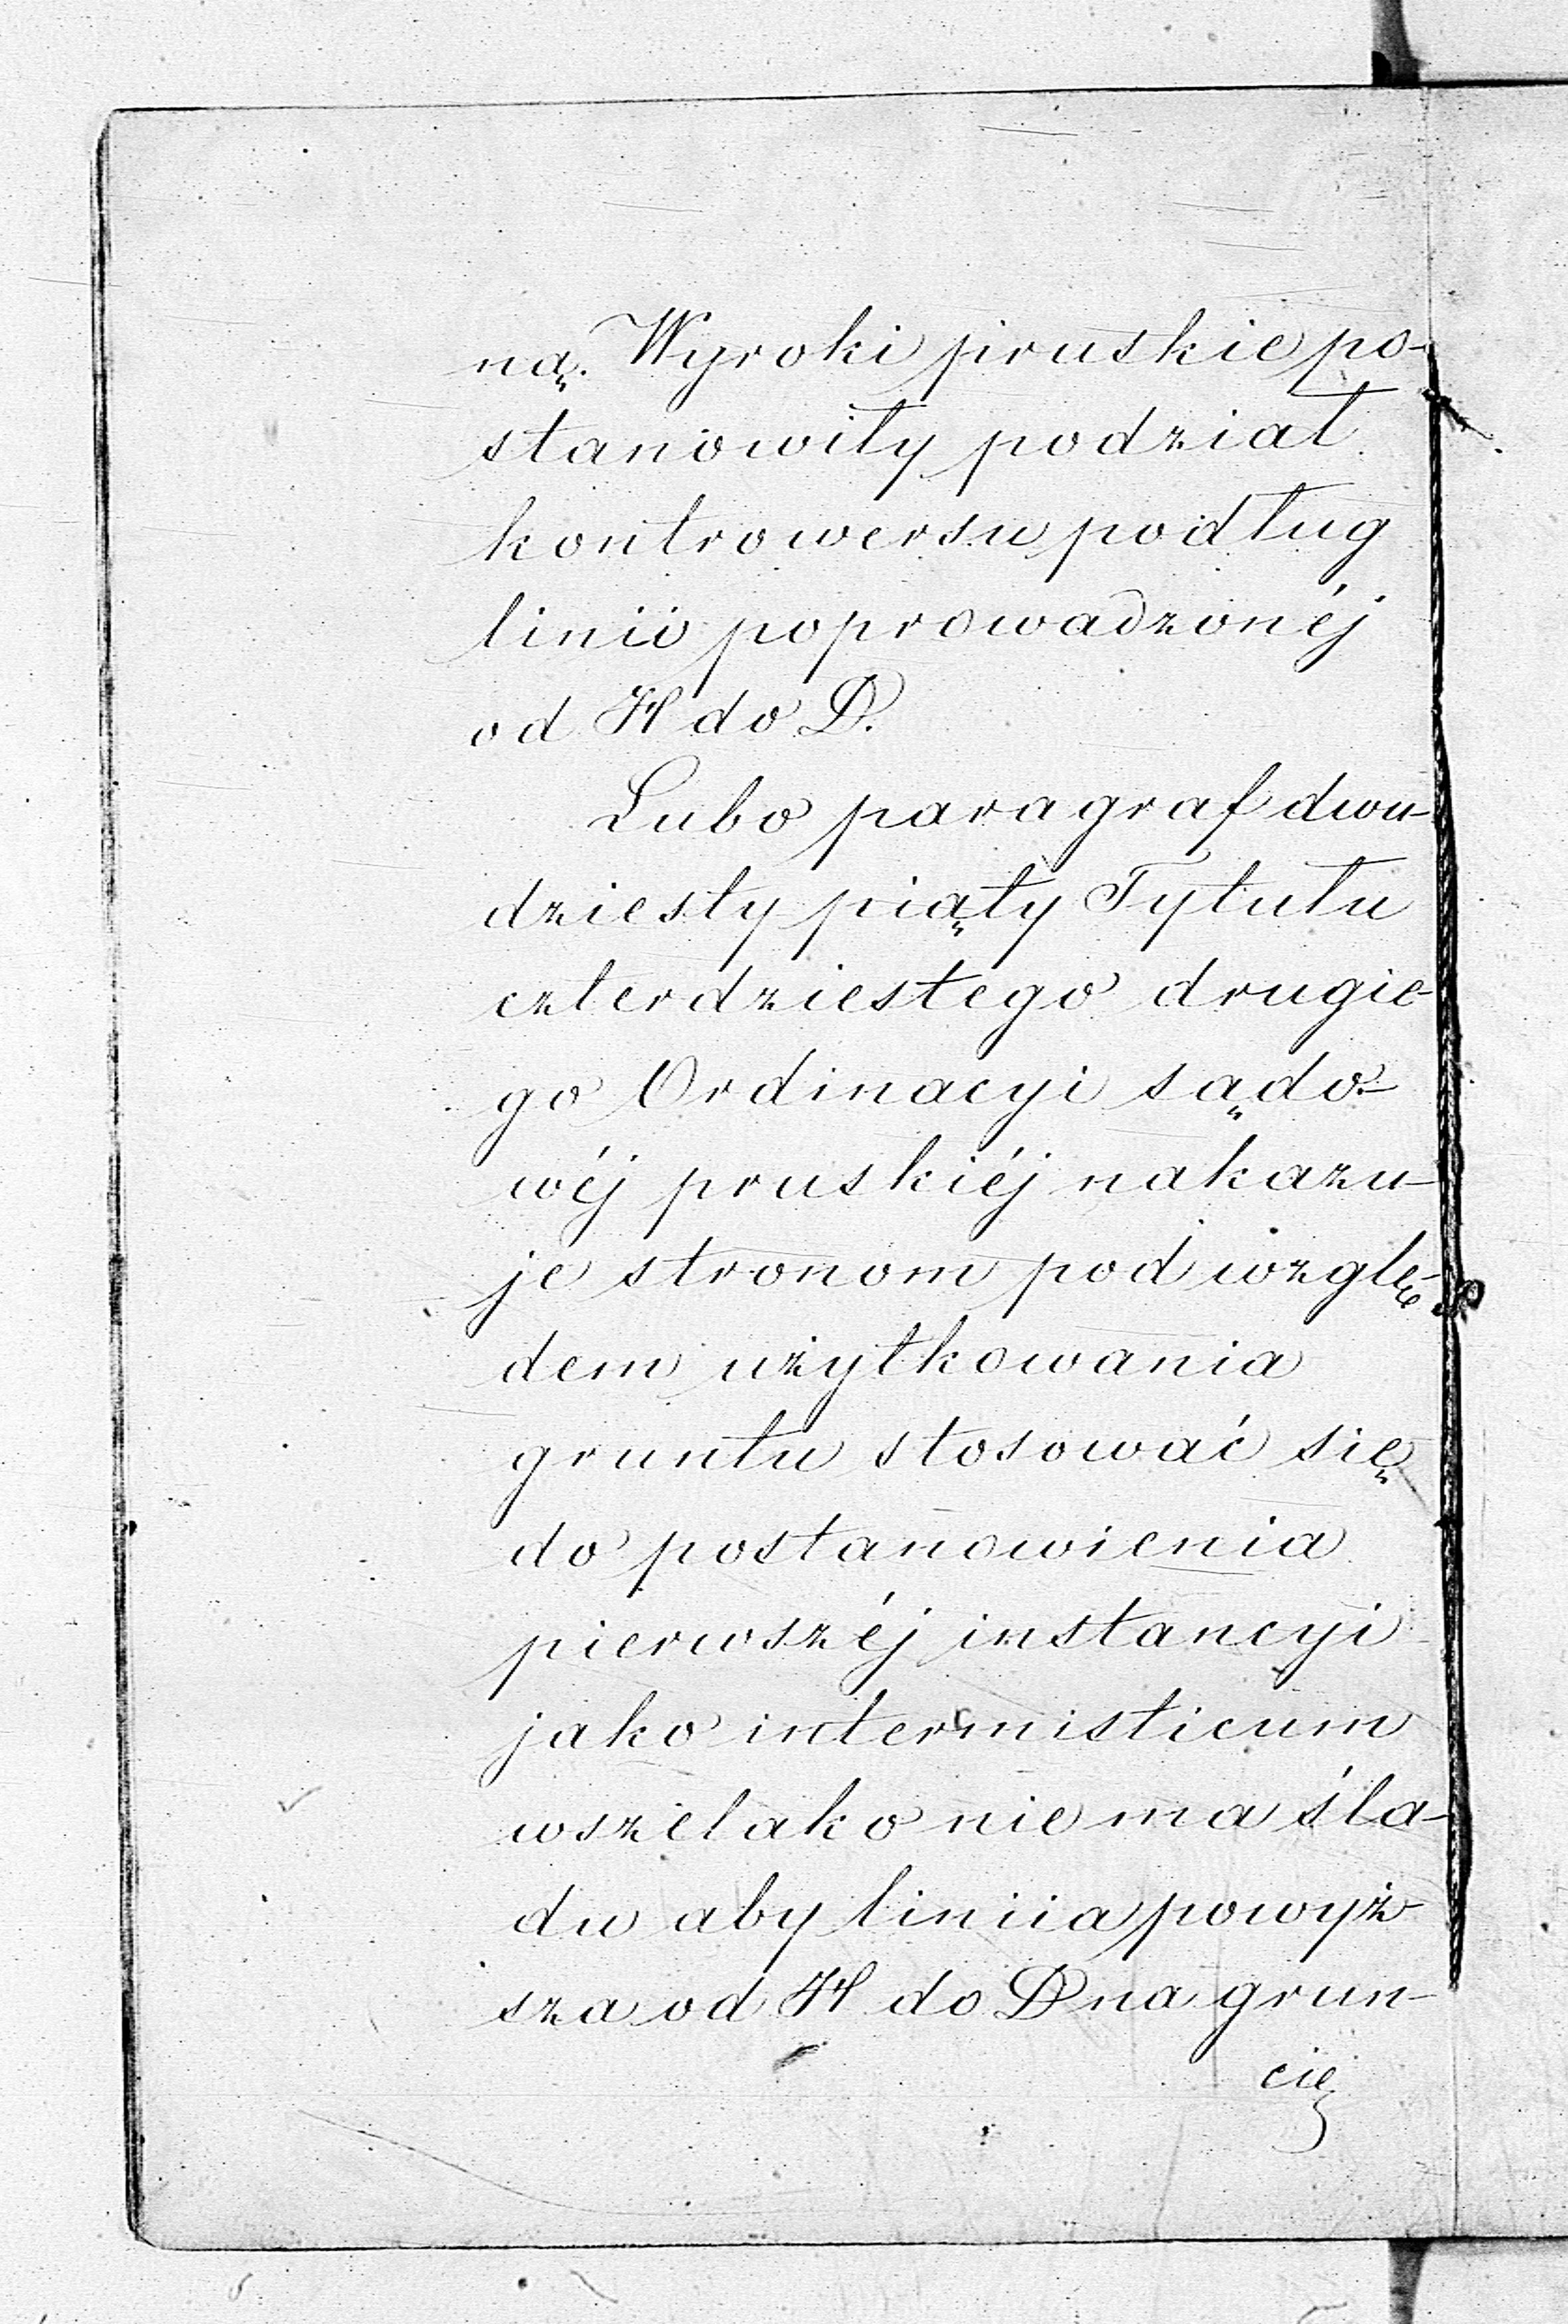 ną. Wyroki pruskie po-
stanowiły podział
kontrowersu podług
linii poprowadzonéj
od H do D.
Lubo paragraf dwu-
dziesty piąty Tytułu
czterdziestego drugie-
go Ordinacyi sądo-
wéj pruskiéj nakazu-
je stronom pod wzglę-
dem użytkowania
gruntu stosować się
do postanowienia
pierwszéj instancyi
jako intermisticum
wszelako nie ma śla-
du aby liniia powyż-
sza od H do D na grun-
cie